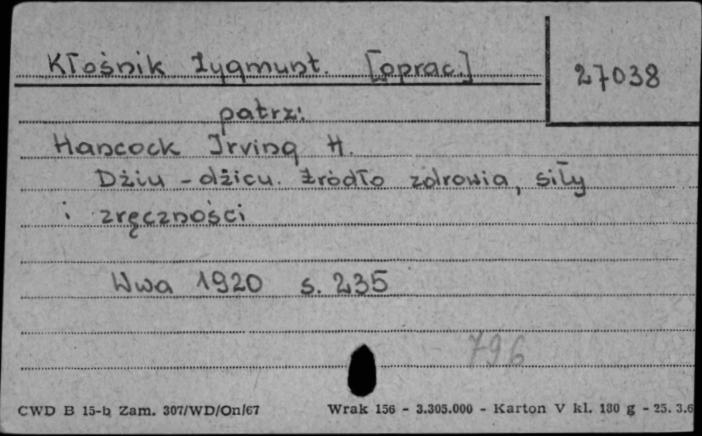 Kłośnik Zygmunt. [oprac.]
27038
patrz:
Hancock Irving H.
Dżiu - dżicu. źródło zdrowia, siły
i zręczności
Wwa 1920 s. 235
796
CWD B 15-b Zam. 307/WD/On/67 Wrak 156 - 3.305.000 - Karton V kl. 180 g - 25. 3.6